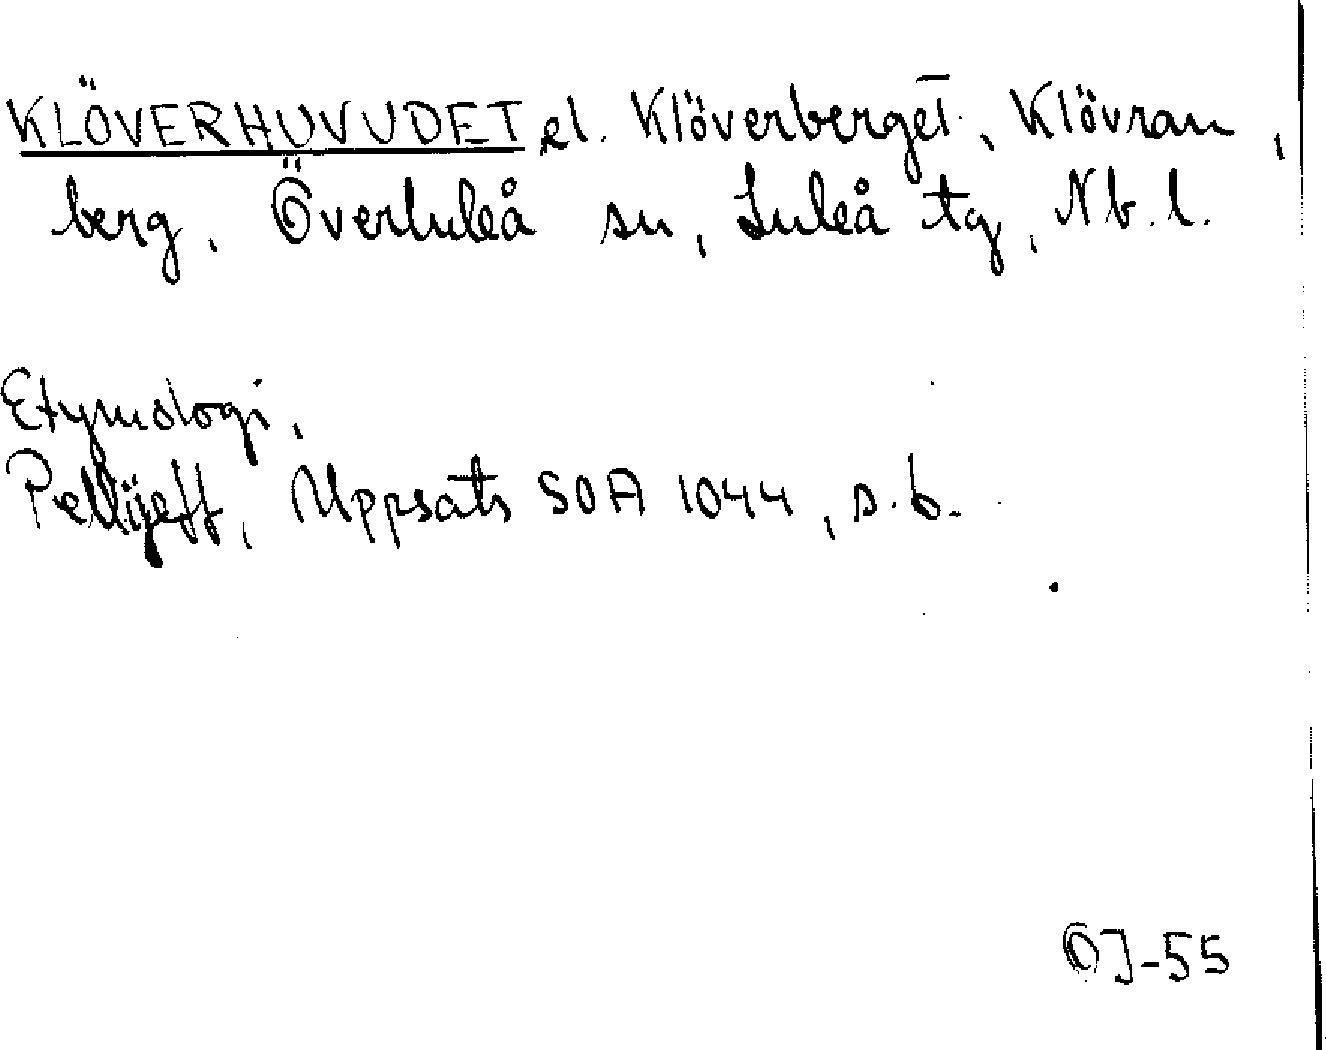 KLÖVERHUVUDET el. Klöverberget, Klövran,
berg, Överluleå sn, Luleå tg, Nb. l.
Etymologi,
Pellijeff, Uppsats SOA 1044, s. 6.
OJ-55